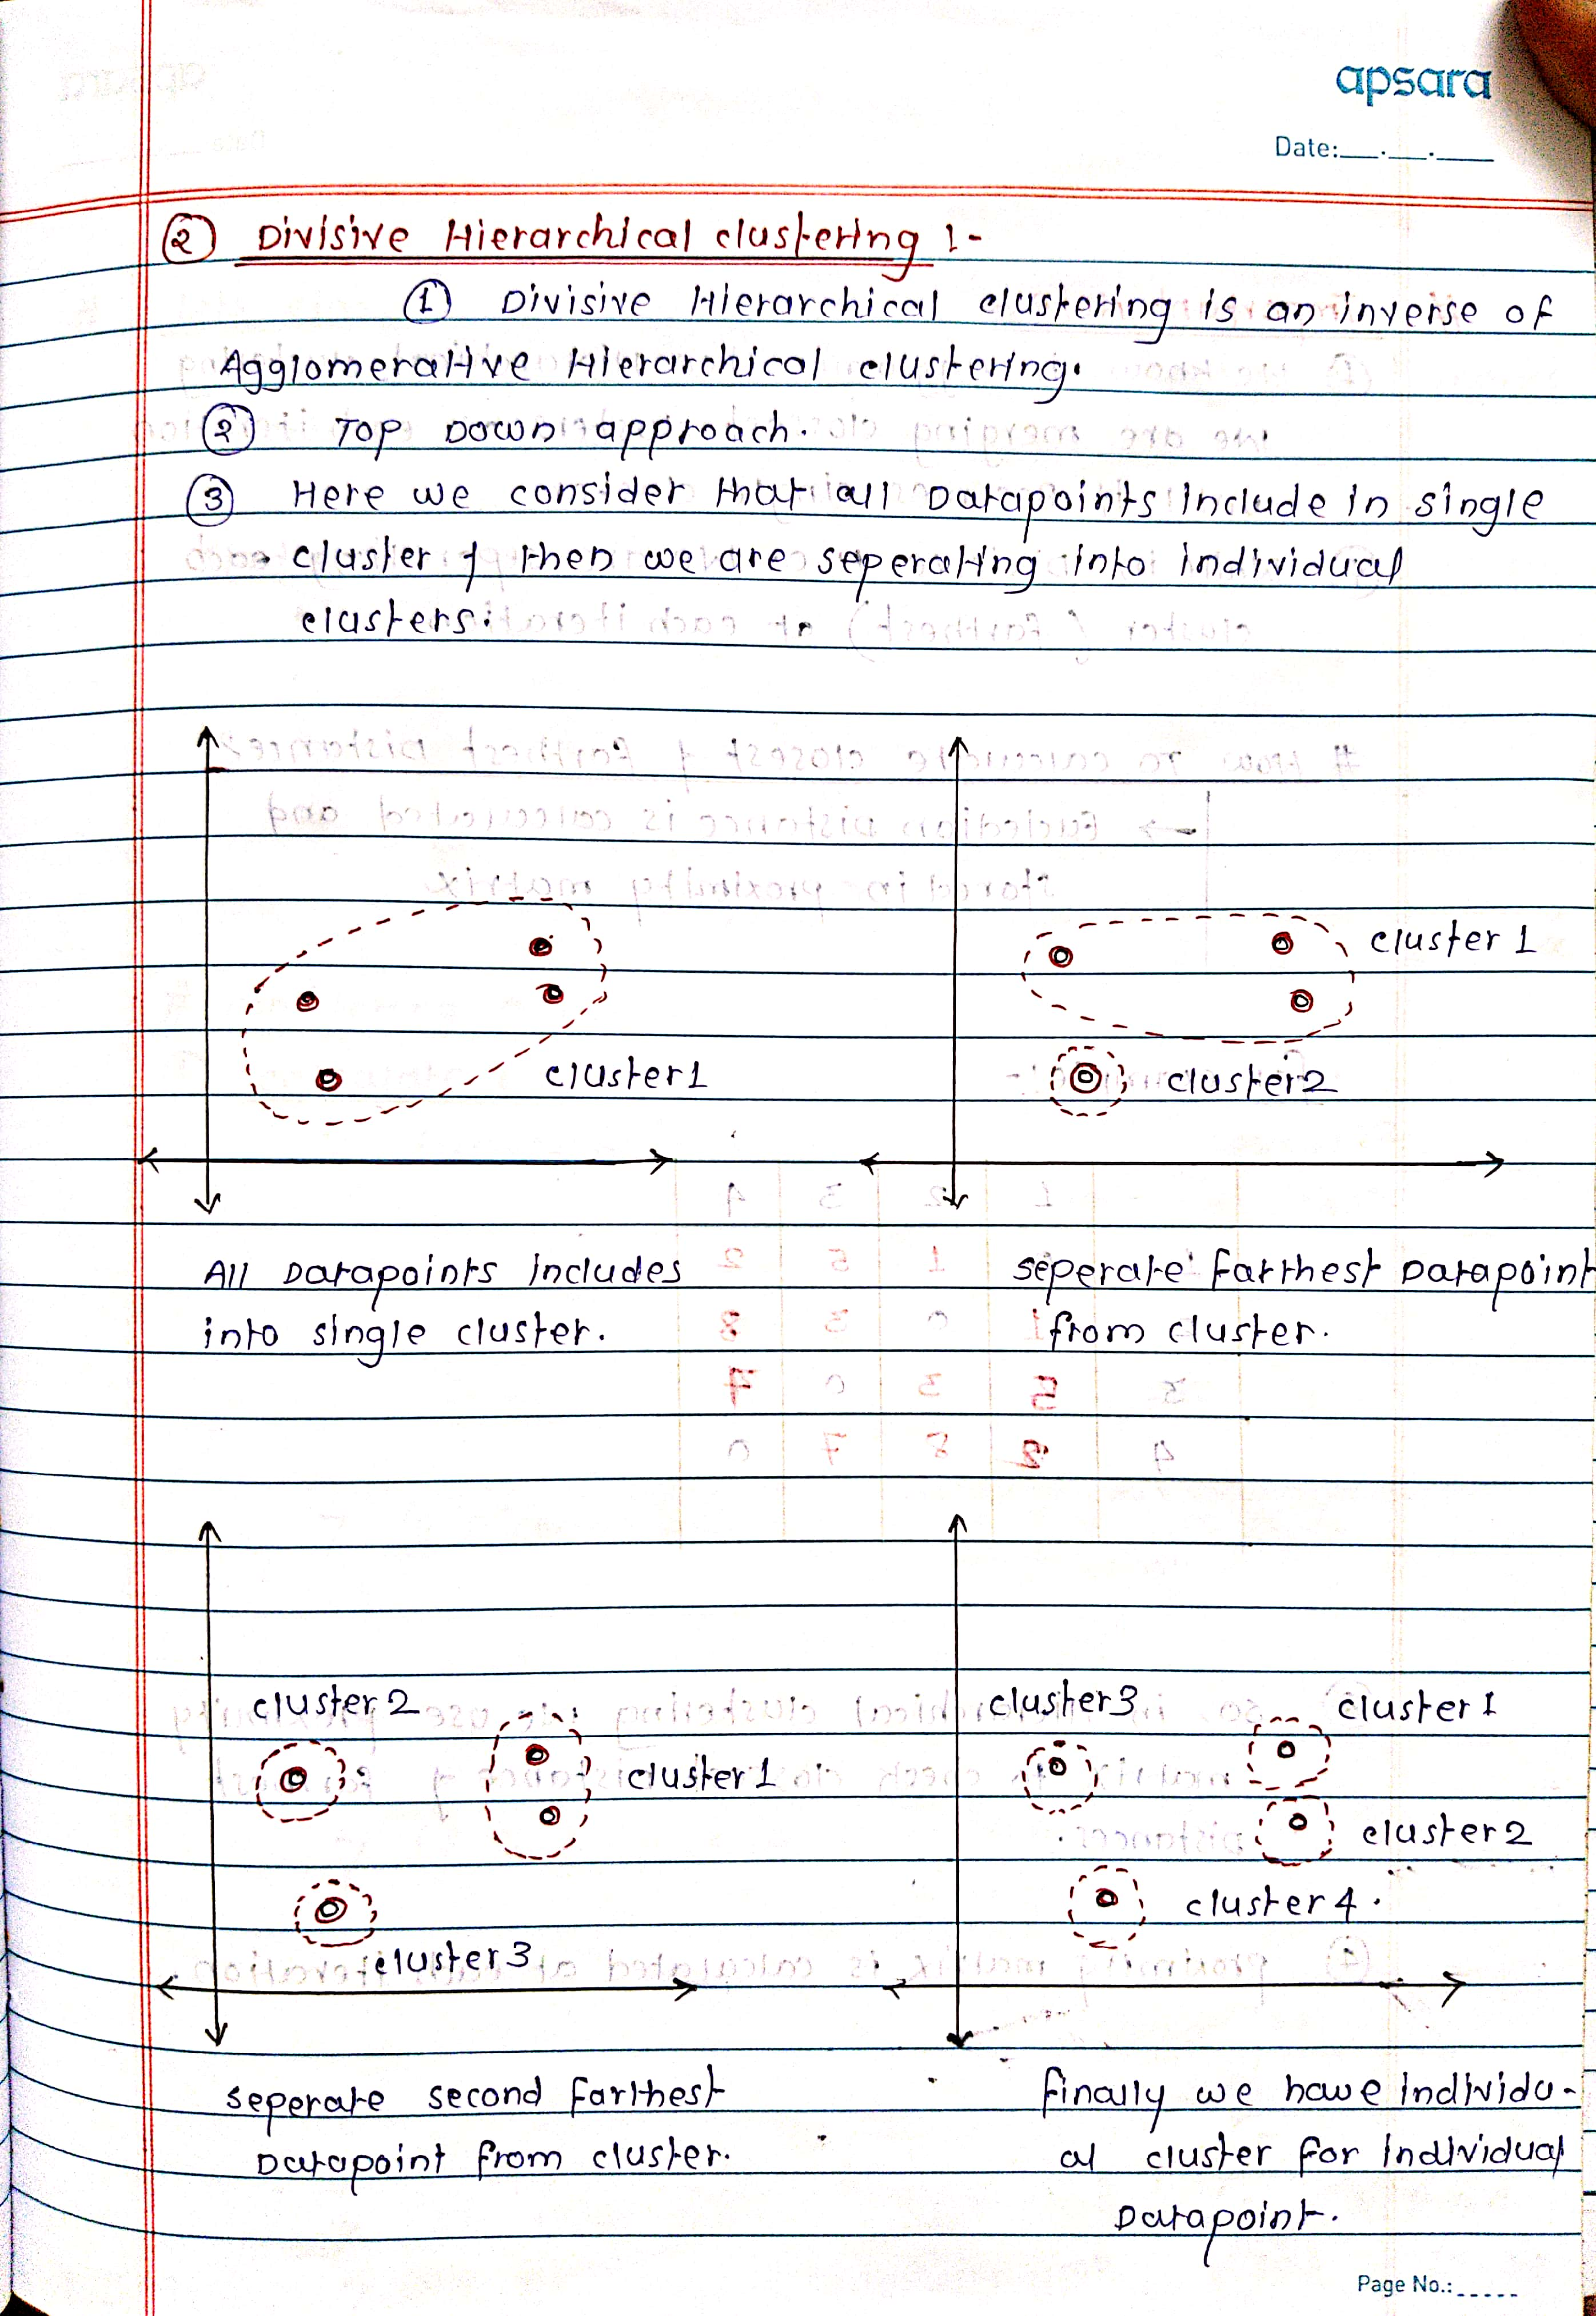 apsara
Date:__.__.__
② Divisive Hierarchical clustering :-
① Divisive Hierarchical clustering is an inverse of
Agglomerative Hierarchical clustering.
② Top Down approach.
③ Here we consider that all Datapoints include in single
cluster & then we are seperating into individual
clusters.
cluster 1
cluster1
cluster2
All Datapoints includes
into single cluster.
seperate farthest Datapoint
from cluster.
cluster 2
cluster 1
cluster3
cluster3
cluster 1
cluster 2
cluster 4.
seperate second farthest
Datapoint from cluster.
finally we have individu-
al cluster for individual
Datapoint.
Page No.:_____